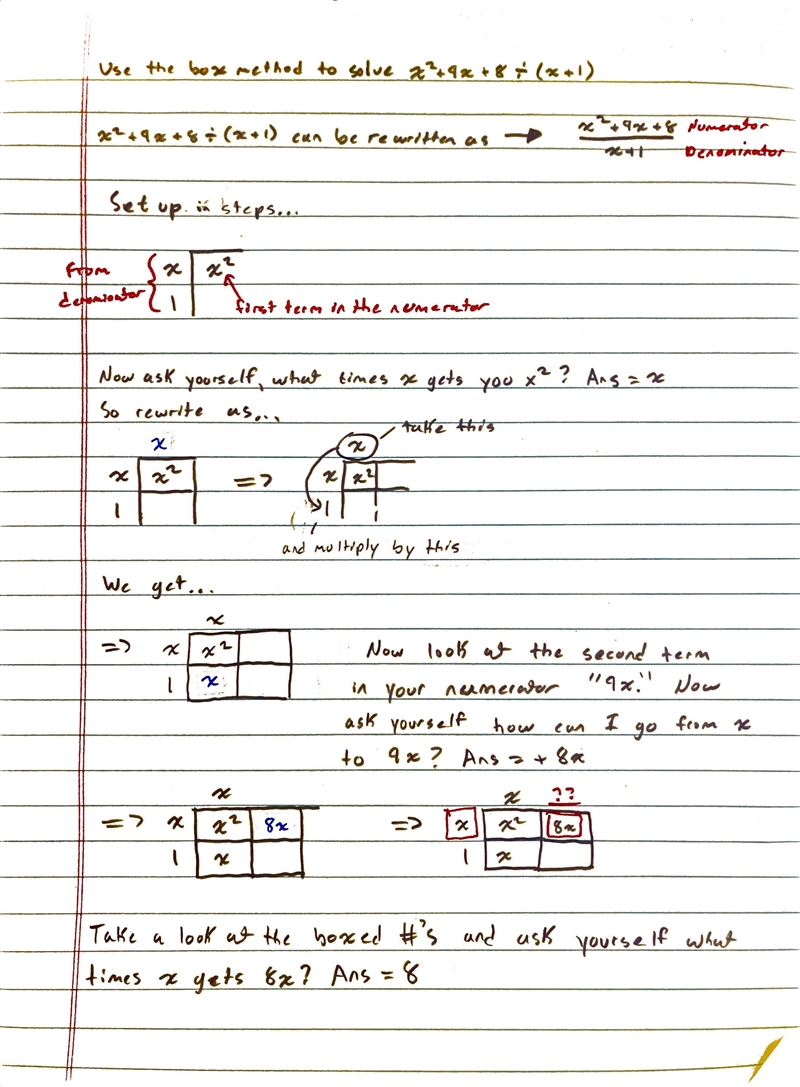 Use the box method to solve x²+9x+8÷(x+1)
x²+9x+8÷(x+1) can be rewritten as → x²+9x+8 Numerator
x+1 Denominator
Set up in steps...
From x x²
denominator 1 first term in the numerator
Now ask yourself, what times x gets you x²? Ans = x
So rewrite as...
x x take this
x x² => x x²
1 1
and multiply by this
We get...
x
=> x x² Now look at the second term
1 x in your numerator "9x." Now
ask yourself how can I go from x
to 9x? Ans = + 8x
x x ??
=> x x² 8x => x x² 8x
1 x 1 x
Take a look at the boxed #'s and ask yourself what
times x gets 8x? Ans = 8